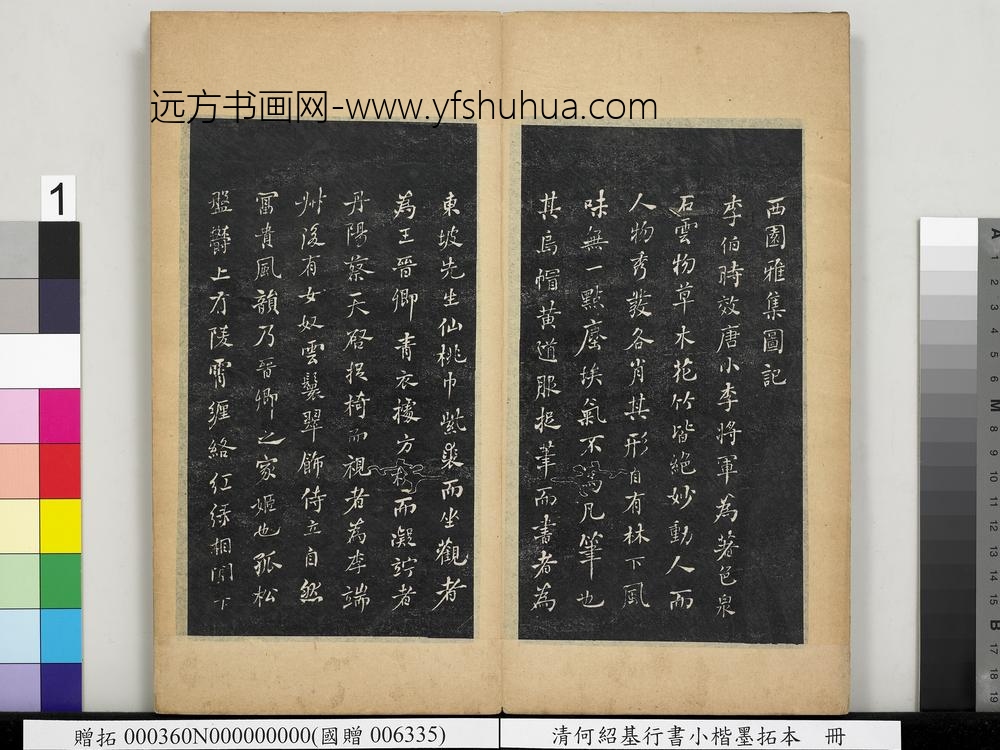 远方书画网-www.yfshuhua.com
西園雅集圖記
李伯時效唐小李將軍為著色泉
石雲物草木花竹皆絶妙動人而
人物秀發各肖其形自有林下風
味無一點塵埃氣不為凡筆也
其烏帽黄道服捉筆而書者為
東坡先生仙桃巾紫裘而坐觀者
為王晉卿青衣據方机而凝竚者
丹陽蔡天啓捉椅而視者為李端
州後有女奴雲鬟翠飾侍立自然
富貴風韻乃晉卿之家姬也孤松
盤鬱上有陵霄纏絡紅緑相間下
1
A 1 2 3 4 5 6 M 8 9 10 11 12 13 14 15 B 17 18 19
贈拓 000360N000000000(國贈 006335)
清何紹基行書小楷墨拓本 冊